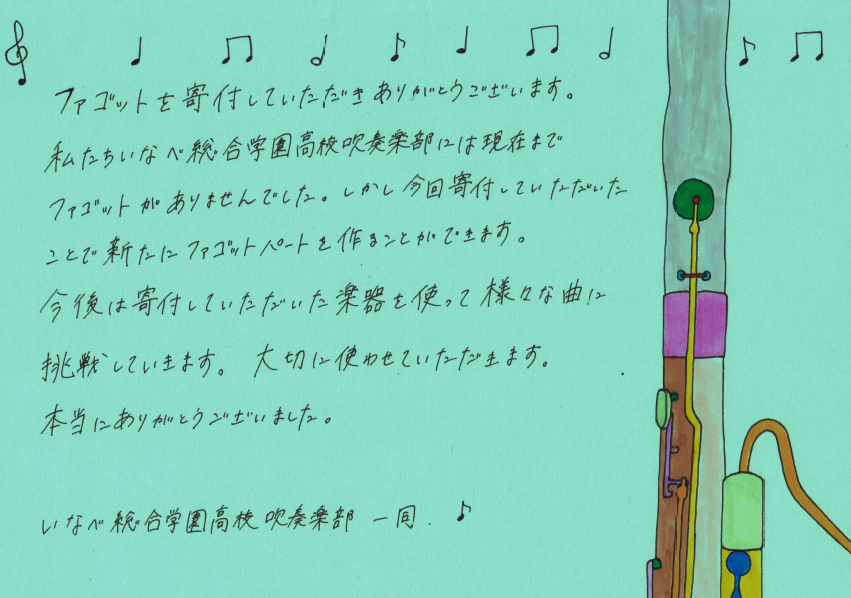 ファゴットを寄付していただきありがとうございます。
私たちいなべ総合学園高校吹奏楽部には現在まで
ファゴットがありませんでした。しかし今回寄付していただいた
ことで新たにファゴットパートを作ることができます。
今後は寄付していただいた楽器を使って様々な曲に
挑戦していきます。 大切に使わせていただきます。
本当にありがとうございました。
いなべ総合学園高校吹奏楽部 一同.